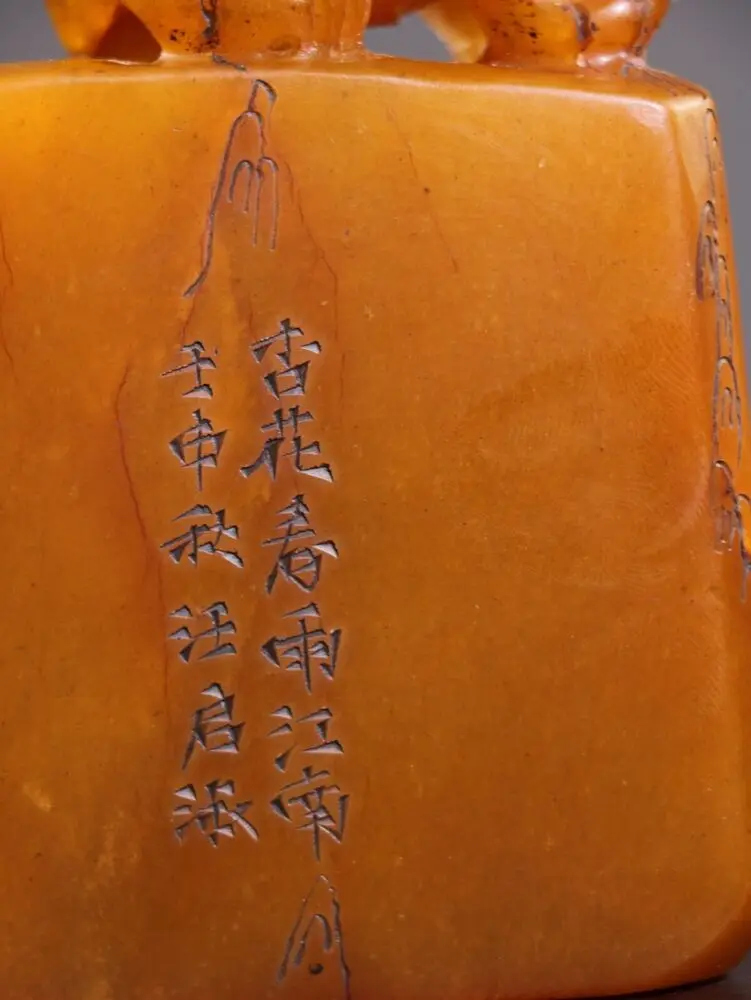 杏花春雨江南
壬申秋汪启淑